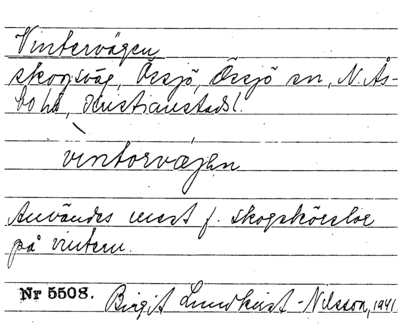 Vintervägen
skogsväg, Össjö, Össjö sn, N. Ås-
bo hd, Kristianstads l.
vintorvægen
Användes mest f. skogskörslor
på vintern.
Nr 5508. Birgit Lundkvist-Nilsson, 1941.